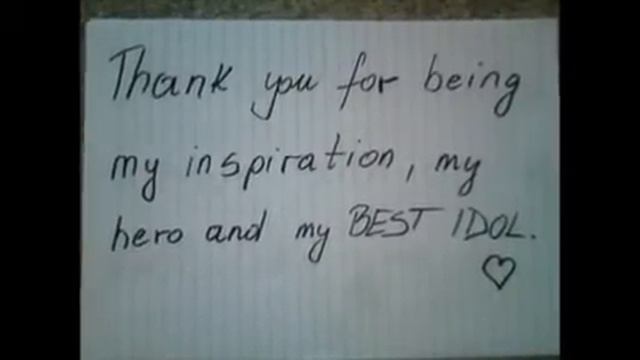 Thank you for being
my inspiration, my
hero and my BEST IDOL.
♡